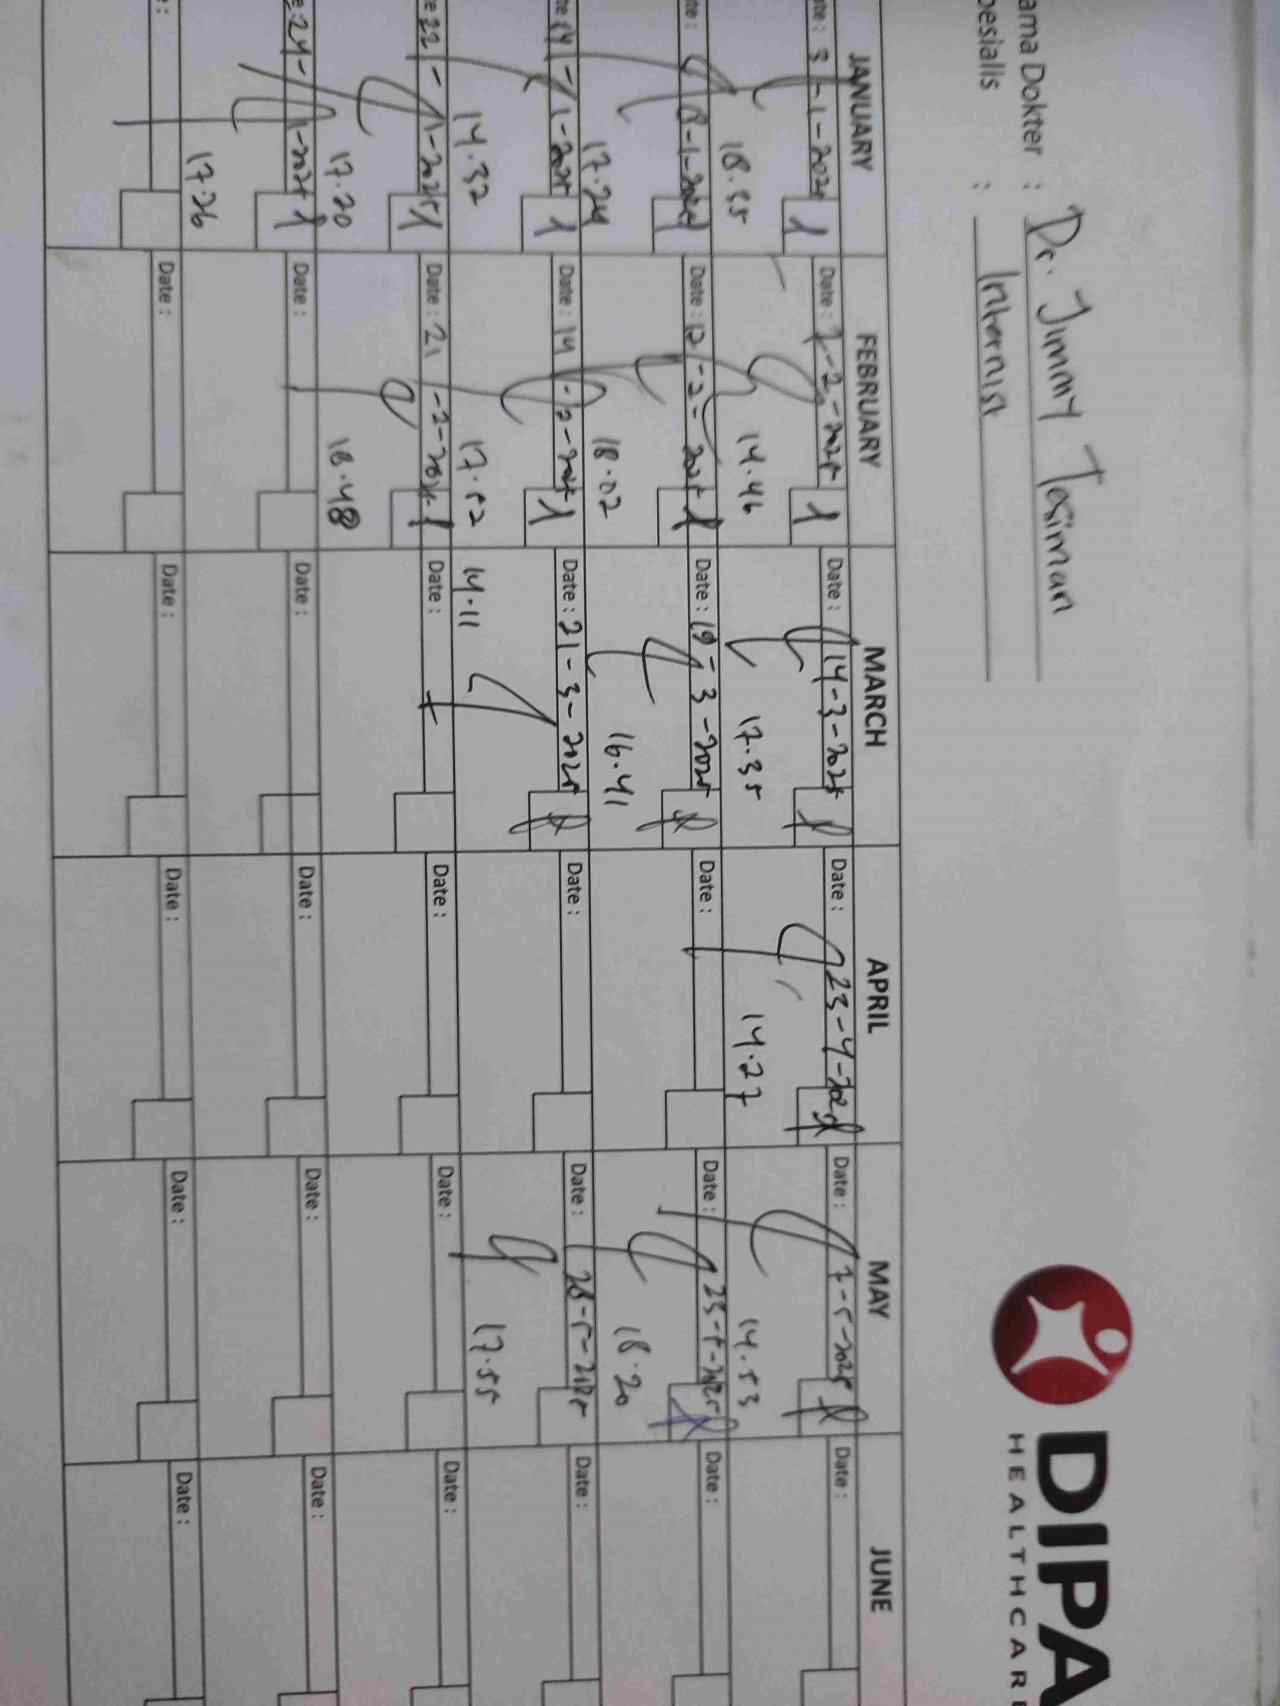 DIPA
HEALTHCARE
ama Dokter : Dr. Jimmy Tasiman
pesialis : Internist
JANUARY FEBRUARY MARCH APRIL MAY JUNE
ate : 3-1-2025 Date : 7-2-2025 Date : 14-3-2025 Date : 23-4-2025 Date : 7-5-2025 Date :
18.55 14.46 17.35 14.27 14.53
te : 8-1-2025 Date : 12-2-2025 Date : 19-3-2025 Date : Date : 23-5-2025 Date :
17.24 18.02 16.41 18.20
te 14-1-2025 Date : 14-2-2025 Date : 21-3-2025 Date : Date : 28-5-2025 Date :
14.32 17.52 14.11 17.55
e 22-1-2025 Date : 21-2-2025 Date : Date : Date : Date :
17.20 18.48
e : 24-1-2025 Date : Date : Date : Date : Date :
17.26
: Date : Date : Date : Date : Date :